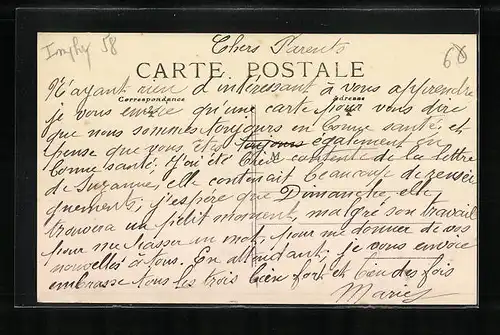 Imphy 58
Chers Parents
60
CARTE POSTALE
Correspondance
Adresse
N'ayant rien d'intéressant à vous apprendre
je vous envoie qu'une carte pour vous dire
que nous sommes toujours en bonne santé, et
pense que vous êtes toujours également en
bonne santé. J'ai été bien contente de la lettre
de Suzanne, elle contenait beaucoup de rensei
gnements, j'espère que Dimanche, elle
trouvera un petit moment, malgré son travail
pour me passer un mot, pour me donner de vos
nouvelles à tous. En attendant, je vous envoie
embrasse tous les trois bien fort et bien des fois
Marie